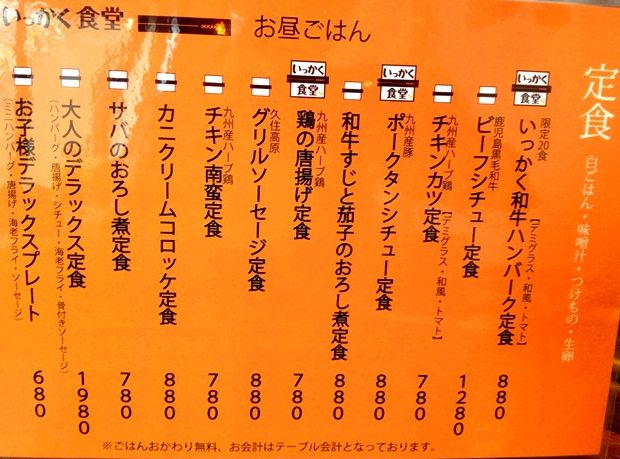 いっかく食堂
お昼ごはん
定食
白ごはん・味噌汁・つけもの・生卵
いっかく
食堂
限定20食
いっかく和牛ハンバーグ定食
【デミグラス・和風・トマト】
880
鹿児島黒毛和牛
ビーフシチュー定食
1280
いっかく
食堂
九州産ハーブ鶏
チキンカツ定食
【デミグラス・和風・トマト】
780
いっかく
食堂
九州産豚
ポークタンシチュー定食
880
和牛すじと茄子のおろし煮定食
880
いっかく
食堂
九州産ハーブ鶏
鶏の唐揚げ定食
780
久住高原
グリルソーセージ定食
880
九州産ハーブ鶏
チキン南蛮定食
780
カニクリームコロッケ定食
880
サバのおろし煮定食
780
大人のデラックス定食
(ハンバーグ・唐揚げ・シチュー・海老フライ・骨付きソーセージ)
1980
お子様デラックスプレート
(ミニハンバーグ・唐揚げ・海老フライ・ソーセージ)
680
※ごはんおかわり無料、お会計はテーブル会計となっております。